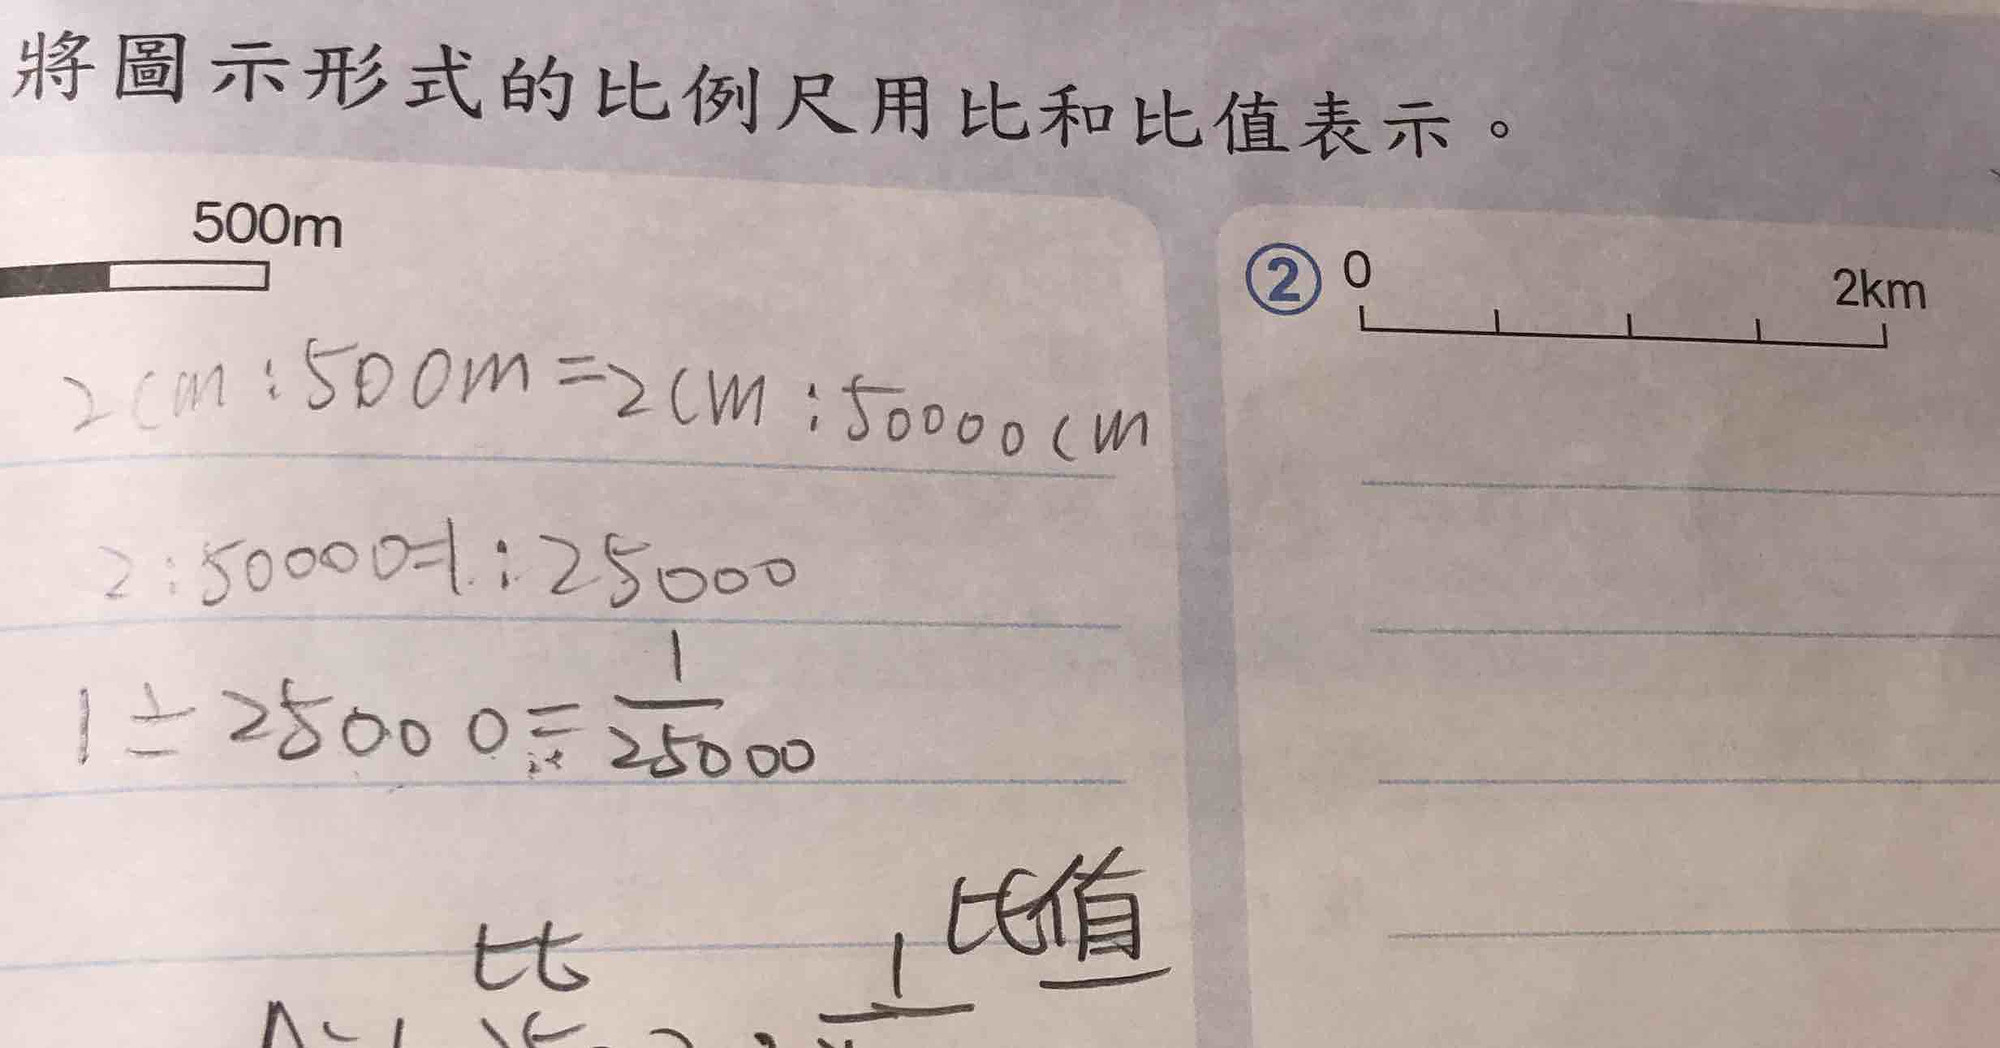 將圖示形式的比例尺用比和比值表示。
500m
2cm:500m=2cm:50000cm
2:50000=1:25000
1÷25000=1/25000
比
比值
1
② 0 2km